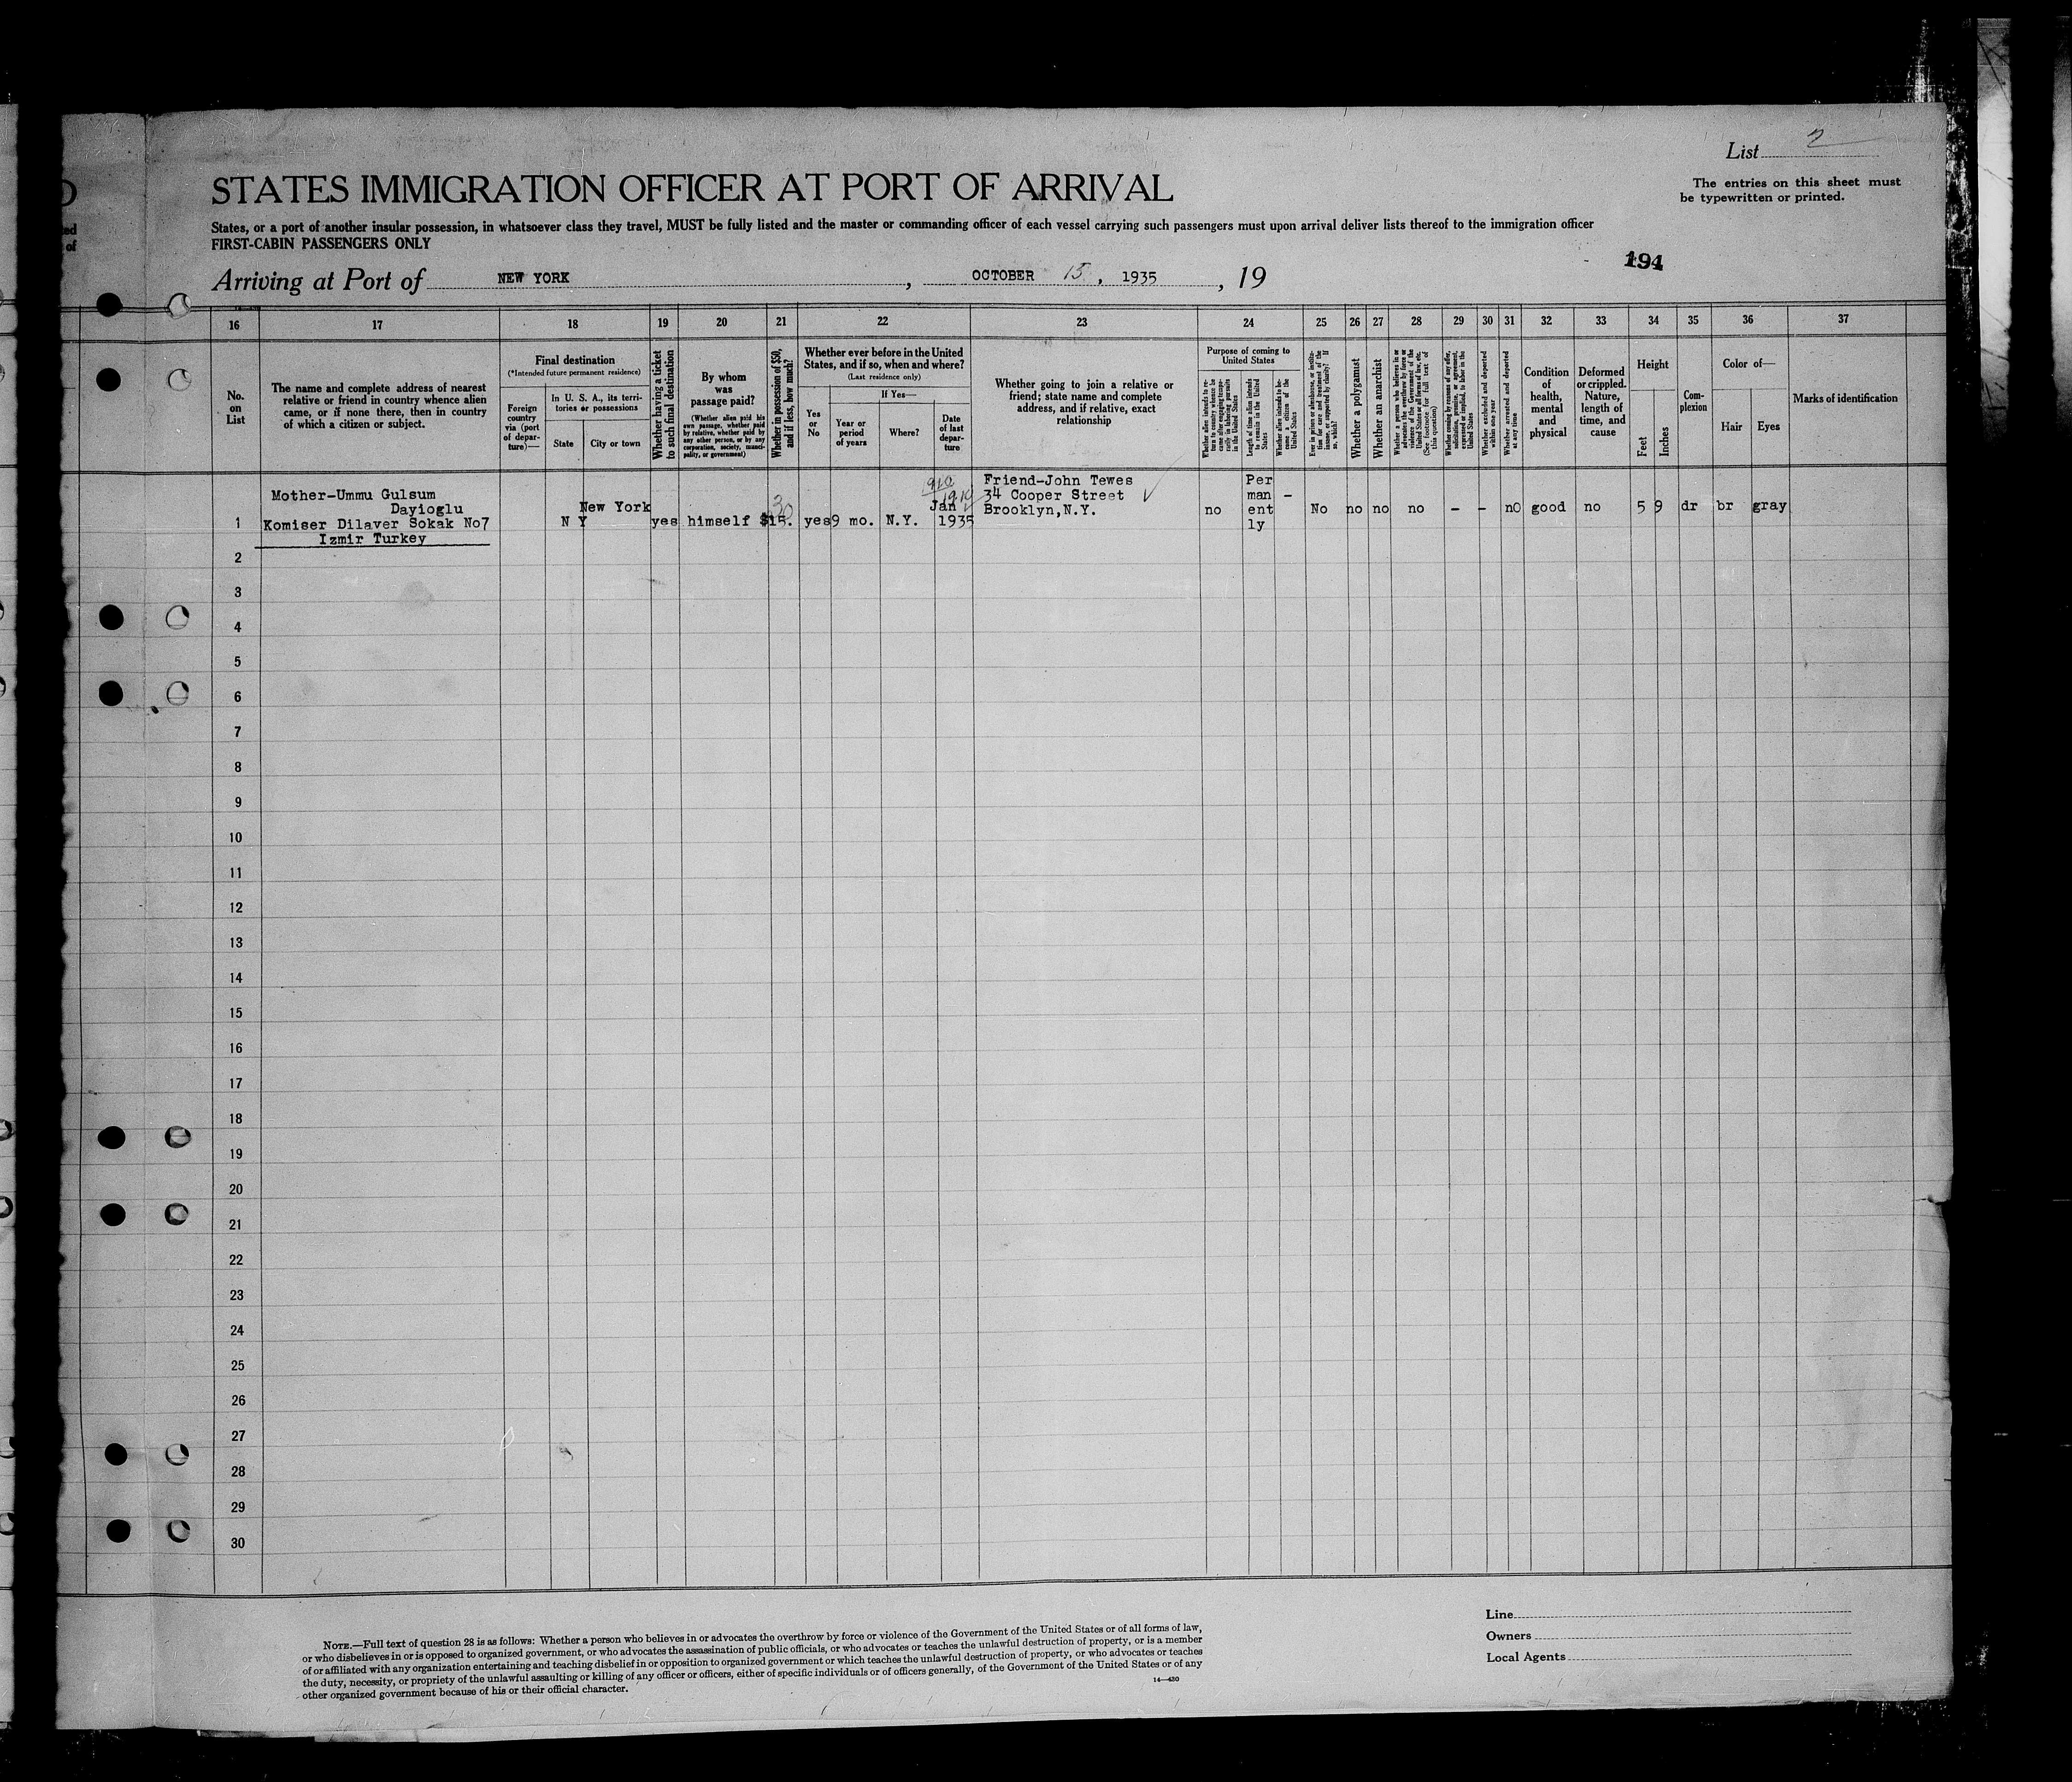 List 2
STATES IMMIGRATION OFFICER AT PORT OF ARRIVAL
The entries on this sheet must
be typewritten or printed.
States, or a port of another insular possession, in whatsoever class they travel, MUST be fully listed and the master or commanding officer of each vessel carrying such passengers must upon arrival deliver lists thereof to the immigration officer
FIRST-CABIN PASSENGERS ONLY
194
Arriving at Port of NEW YORK, OCTOBER 15, 1935, 19
16 17 18 19 20 21 22 23 24 25 26 27 28 29 30 31 32 33 34 35 36 37
No.
on
List
The name and complete address of nearest
relative or friend in country whence alien
came, or if none there, then in country
of which a citizen or subject.
Final destination
(*Intended future permanent residence)
Foreign
country
via (port
of depar-
ture)—
In U. S. A., its terri-
tories or possessions
State
City or town
Whether having a ticket
to such final destination
By whom
was
passage paid?
(Whether alien paid his
own passage, whether paid
by relative, whether paid by
any other person, or by any
corporation, society, munici-
pality, or government)
Whether in possession of $50,
and if less, how much?
Whether ever before in the United
States, and if so, when and where?
(Last residence only)
Yes
or
No
If Yes—
Year or
period
of years
Where?
Date
of last
depar-
ture
Whether going to join a relative or
friend; state name and complete
address, and if relative, exact
relationship
Purpose of coming to
United States
Whether alien intends to re-
turn to country whence he
came after engaging tempo-
rarily in laboring pursuits
in the United States
Length of time alien intends
to remain in the United
States
Whether alien intends to be-
come a citizen of the
United States
Ever in prison or almshouse, or institu-
tion for care and treatment of the
insane, or supported by charity? If
so, which?
Whether a polygamist
Whether an anarchist
Whether a person who believes in or
advocates the overthrow by force or
violence of the Government of the
United States or all forms of law, etc.
(See footnote for full text of
this question)
Whether coming by reason of any offer,
solicitation, promise, or agreement,
expressed or implied, to labor in the
United States
Whether excluded and deported
within one year
Whether arrested and deported
at any time
Condition
of
health,
mental
and
physical
Deformed
or crippled.
Nature,
length of
time, and
cause
Height
Feet
Inches
Com-
plexion
Color of—
Hair
Eyes
Marks of identification
Mother-Ummu Gulsum
Dayioglu
1 Komiser Dilaver Sokak No7
Izmir Turkey
N Y
New York
yes
himself
$15.
30
yes
9 mo.
N.Y.
Jan
1935
Friend-John Tewes
34 Cooper Street
Brooklyn,N.Y.
no
Per
man
ent
ly
-
No no no no - - no good no 5 9 dr br gray
2
3
4
5
6
7
8
9
10
11
12
13
14
15
16
17
18
19
20
21
22
23
24
25
26
27
28
29
30
NOTE.—Full text of question 28 is as follows: Whether a person who believes in or advocates the overthrow by force or violence of the Government of the United States or of all forms of law,
or who disbelieves in or is opposed to organized government, or who advocates the assassination of public officials, or who advocates or teaches the unlawful destruction of property, or is a member
of or affiliated with any organization entertaining and teaching disbelief in or opposition to organized government or which teaches the unlawful destruction of property, or who advocates or teaches
the duty, necessity, or propriety of the unlawful assaulting or killing of any officer or officers, either of specific individuals or of officers generally, of the Government of the United States or of any
other organized government because of his or their official character.
14—430
Line
Owners
Local Agents